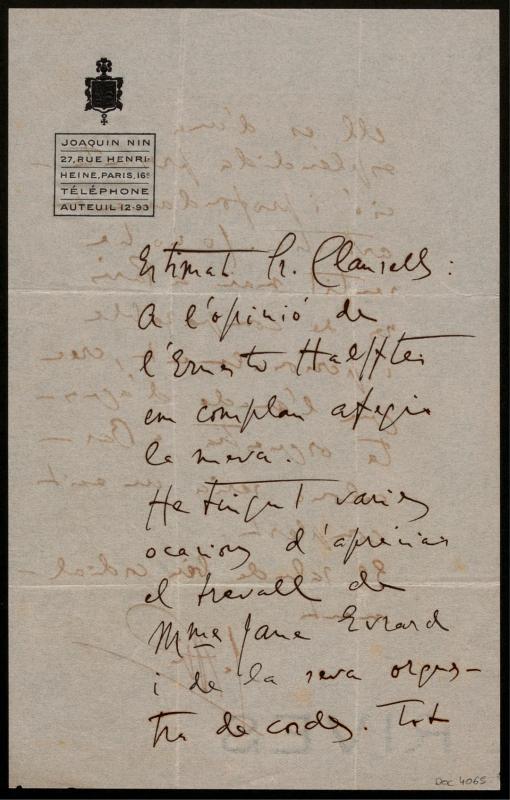 JOAQUIN NIN
27, RUE HENRI-
HEINE, PARIS, 16e
TÉLÉPHONE
AUTEUIL 12-93
Estimat Sr. Clausells:
A l'opinió de
l'Ernesto Halffter
em complau afegir
la meva.
He tingut varies
ocasions d'apreciar
el trevall de
Mme Jane Evrard
i de la seva orques-
tra de cordes. Tot
Doc 4065